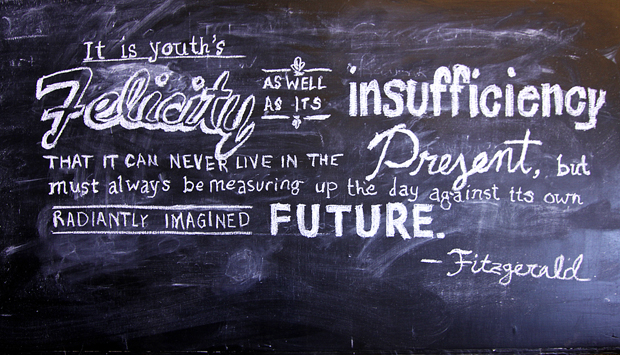 It is youth's
Felicity AS WELL AS ITS insufficiency
THAT IT CAN NEVER LIVE IN THE Present, but
must always be measuring up the day against its own
RADIANTLY IMAGINED FUTURE.
- Fitzgerald